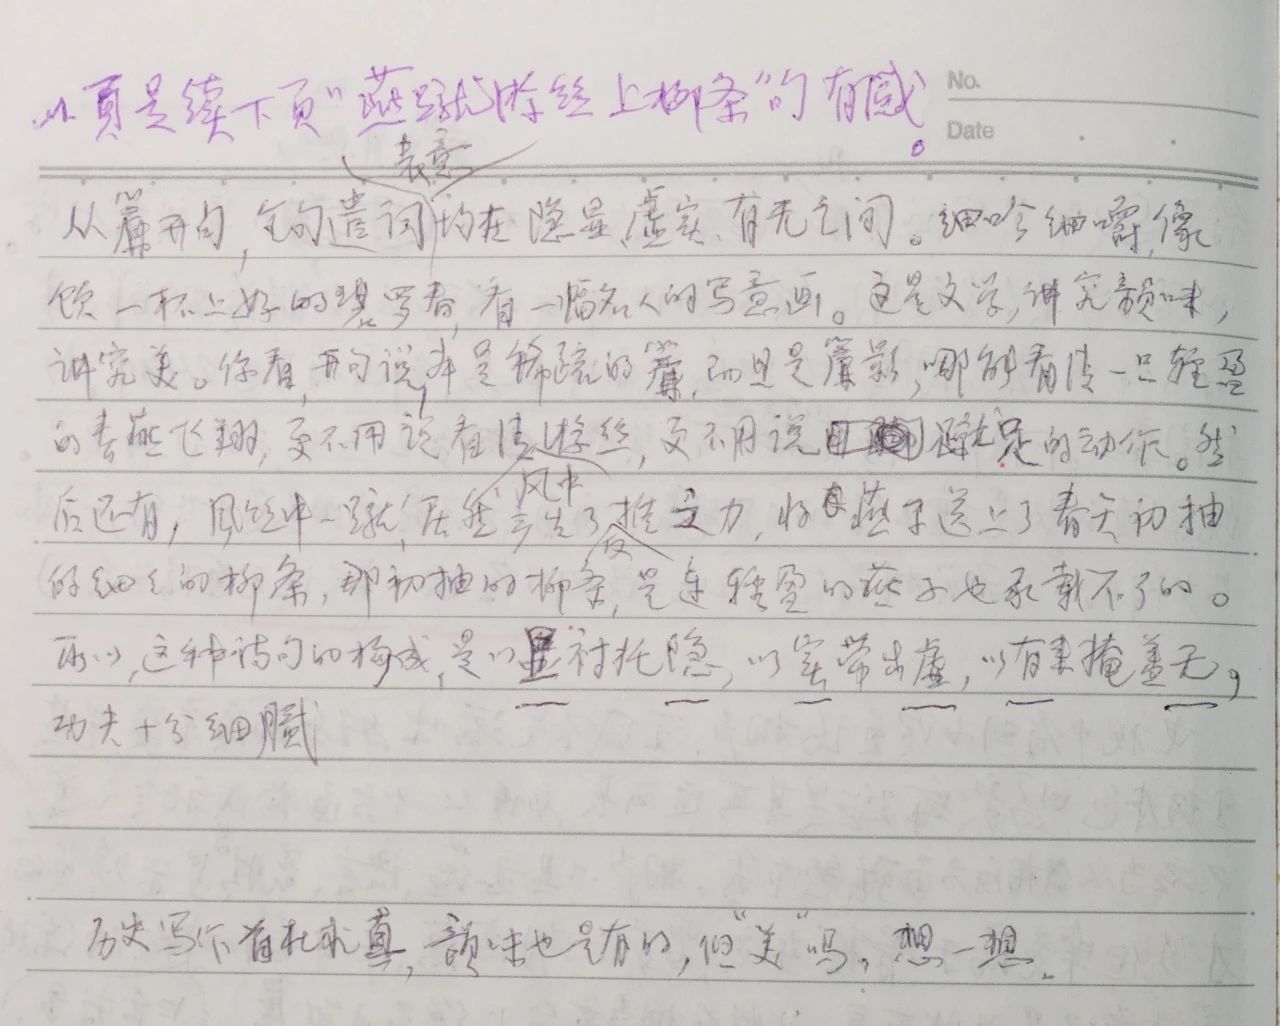 此页是续下页"燕蹴游丝上柳条"的有感。
No.
Date
表意
从篇开句,全句遣词均在隐显、虚实、有无之间。细吟细嚼,像
饮一杯上好的碧罗春,看一幅名人的写意画。这是文学,讲究韵味,
讲究美。你看,开句说,本是稀疏的簾,而且是簾影,哪能看清一只轻盈
的春燕飞翔,更不用说看清游丝,更不用说蹴的动作。然
风中
后还有,風丝中一蹴,居然产生了推力,将燕子送上了春天初抽
反
的细细的柳条,那初抽的柳条,是连轻盈的燕子也承载不了的。
所以,这种诗句的构成,是以显衬托隐,以实带出虚,以有来掩盖无,
功夫十分细腻
历史写作旨在求真,韵味也是有的,但"美"吗,想一想。